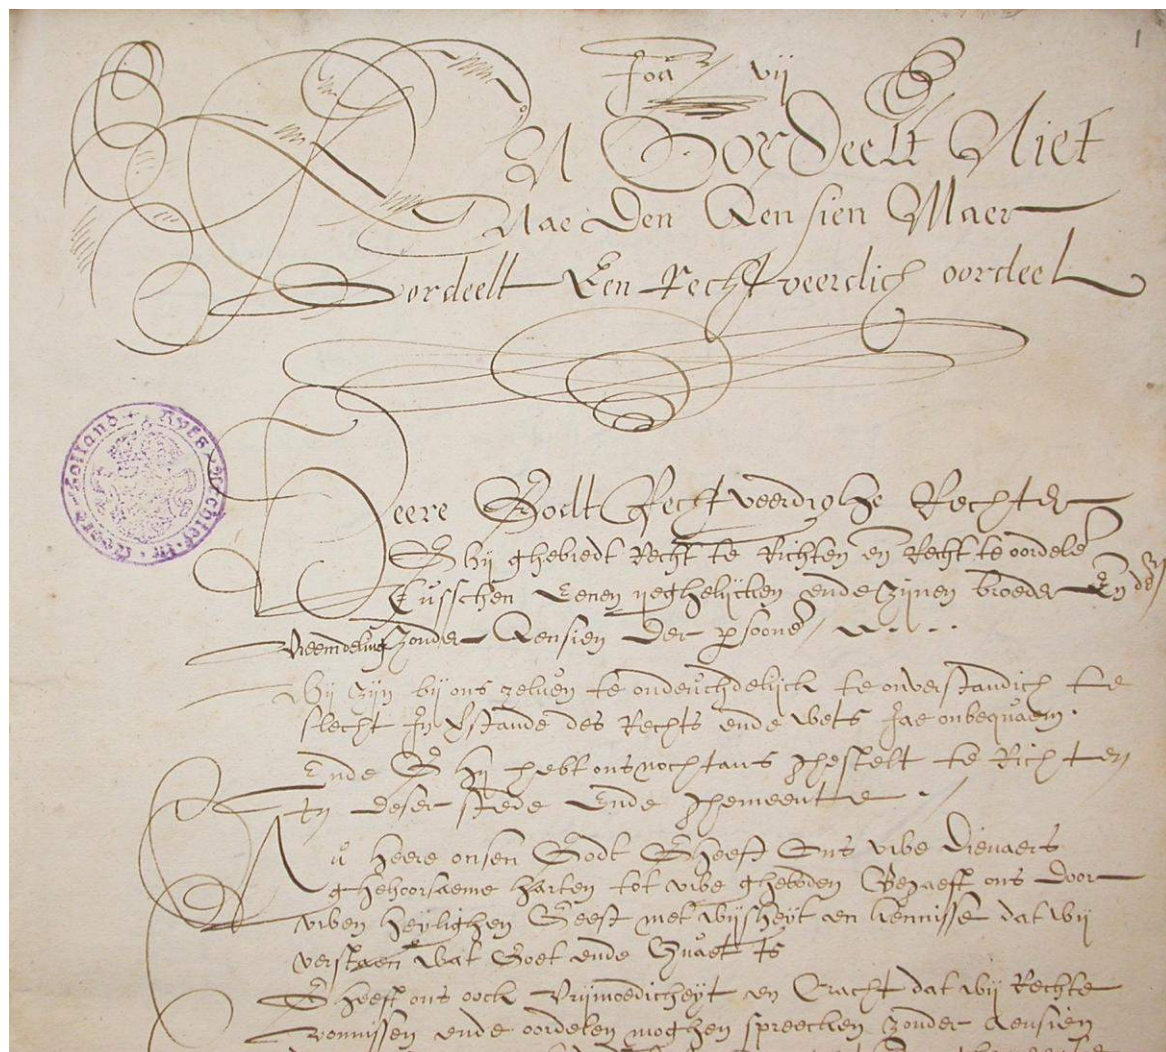 1
Joa vij
EN Oordeelt Niet
Nae den Aensien Maer
Oordeelt Een Rechtveerdich oordeel
Heere Godt Rechtveerdighe Rechter
Ghij ghebiedt Recht te Richten en Recht te oordele
Tusschen Eenen yeghelijcken ende zijnen broeder En de
Vreemdeling zonder Aensien der persoone
Rycs Archief in Noord-Holland
Wij zijn bij ons zelven te ondeuchdelijck te onverstandich te
slecht In verstande des Rechts ende wets Jae onbequaem.
Ende Ghij hebt ons nochtans ghestelt te Richten
In deser stede Ende ghemeente.
Nu heere onsen Godt Gheeft Ons uwe Dienaers
ghehoorsaeme harten tot uwe gheboden Begaeft ons Door
uwen heylighen Geest met wijsheyt en kennisse dat wij
verstaen wat Goet ende Quaet is
Gheeft ons oock Vrijmoedicheyt en Cracht dat wij Rechte
vonnissen ende oordelen moghen spreecken zonder Aensien